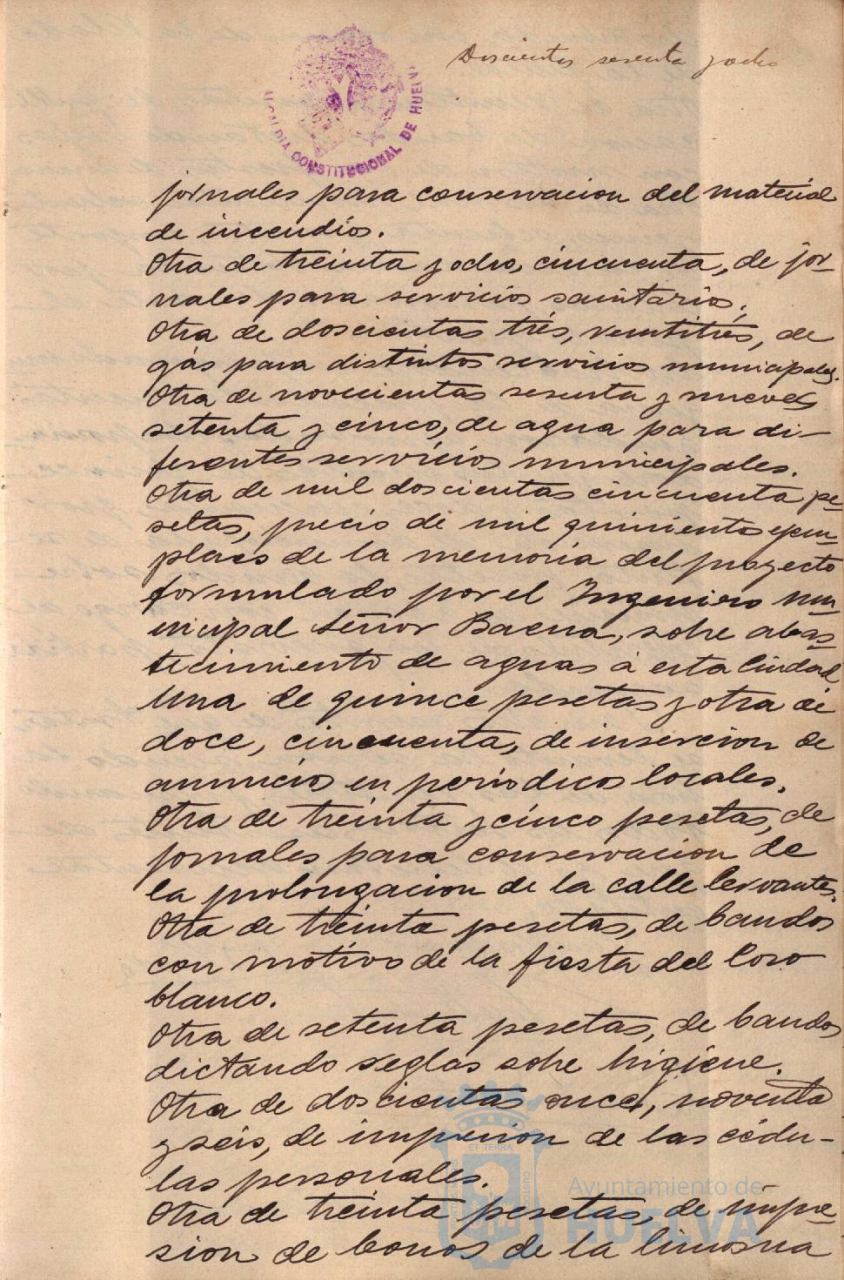 Doscientos sesenta y ocho
ALCALDIA CONSTITUCIONAL DE HUELVA
jornales para conservacion del material
de incendios.
Otra de treinta y ocho, cincuenta, de jor-
nales para servicios sanitarios.
Otra de doscientas trés, veintitrés, de
gas para distintos servicios municipales.
Otra de novecientas sesenta y nueve,
setenta y cinco, de agua para di-
ferentes servicios municipales.
Otra de mil doscientas cincuenta pe-
setas, precio de mil quinientos ejem-
plares de la memoria del proyecto
formulado por el Ingeniero mu-
nicipal Señor Baena, sobre abas-
tecimiento de aguas á esta Ciudad
Una de quince pesetas y otra de
doce, cincuenta, de insercion de
anuncios en periodicos locales.
Otra de treinta y cinco pesetas, de
jornales para conservacion de
la prolongacion de la calle Cervantes.
Otra de treinta pesetas, de bandos
con motivo de la fiesta del Coso
blanco.
Otra de setenta pesetas, de bandos
dictando reglas sobre higiene.
Otra de doscientas once, noventa
y seis, de impresion de las cédu-
las personales.
Otra de treinta pesetas, de impre-
sion de bonos de la limosna
Ayuntamiento de
HUELVA